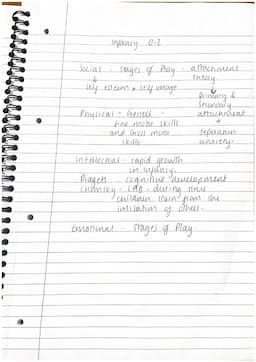 Infancy 0-2
Social - Stages of Play - attachment
theory
↓
self esteem + self image
↓
primary &
secondary
Physical - Gesell - attachment
fine motor skills +
and Gross motor seperation
skills anxiety.
Intellectual - rapid growth
in infancy.
Piaget - cognitive development
Chomsky - LAD - during time
children learn from the
imitation of others.
Emotional - Stages of Play.